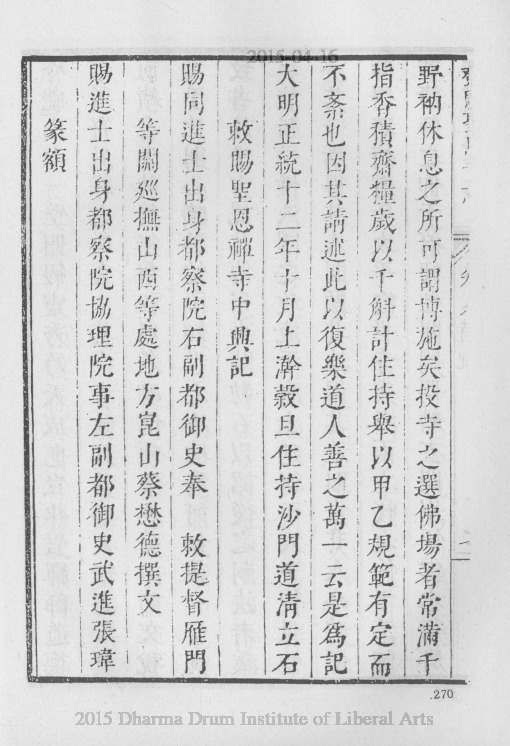 2015-04-16
野衲休息之所可謂博施矣投寺之選佛場者常滿千
指香積齋糧歲以千斛計住持舉以甲乙規範有定而
不紊也因其請述此以復樂道人善之萬一云是爲記
大明正統十二年十月上澣穀旦住持沙門道清立石
敕賜聖恩禪寺中興記
賜同進士出身都察院右副都御史奉 敕提督雁門
等關巡撫山西等處地方崑山蔡懋德撰文
賜進士出身都察院協理院事左副都御史武進張瑋
篆額
270
2015 Dharma Drum Institute of Liberal Arts